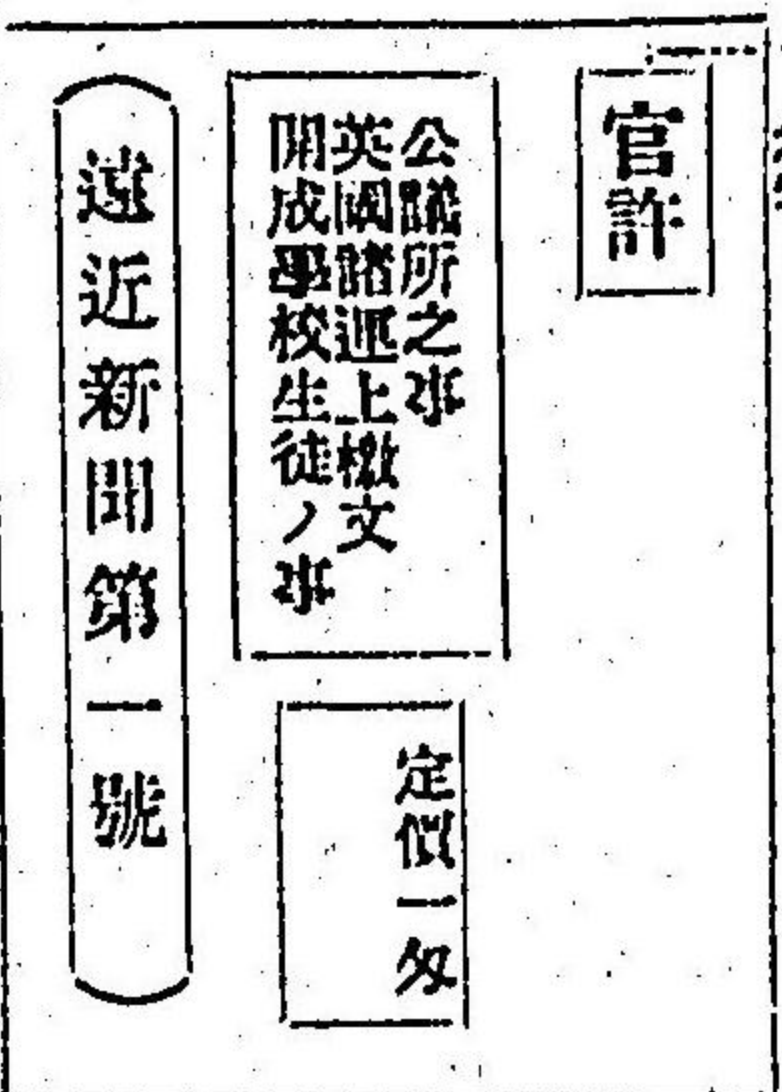 官許
公議所之事
英國諸運上檄文
開成學校生徒ノ事
定價一匁
遠近新聞第一號